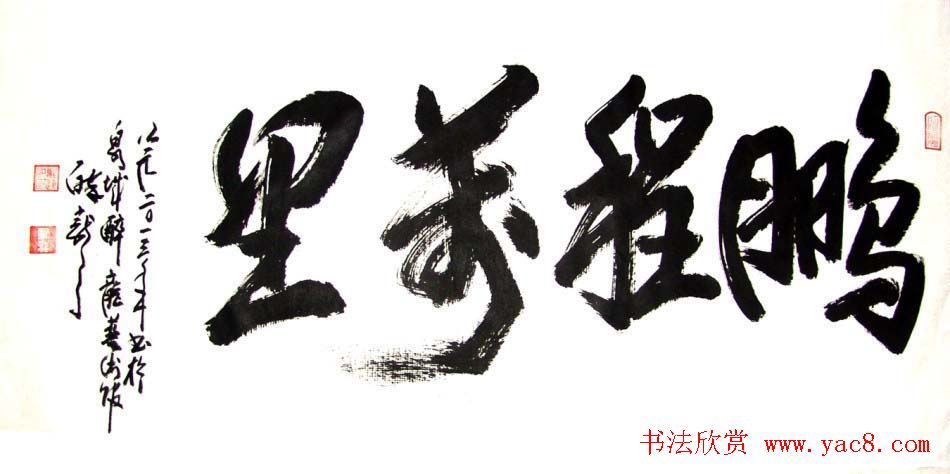 鹏程萬里
公元二〇一三年书於
岛城醉龙艺术馆
书法欣赏 www.yac8.com